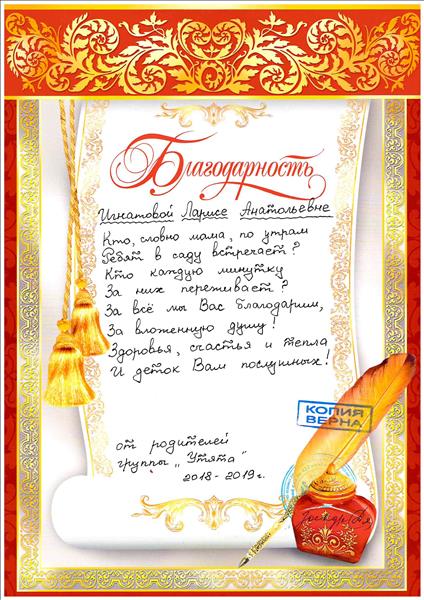 Благодарность
Игнатовой Ларисе Анатольевне
Кто, словно мама, по утрам
Ребят в саду встречает?
Кто каждую минутку
За них переживает?
За всё мы Вас благодарим,
За вложенную душу!
Здоровья, счастья и тепла
И деток Вам послушных!
КОПИЯ
ВЕРНА
от родителей
группы „Утята"
2018-2019г.